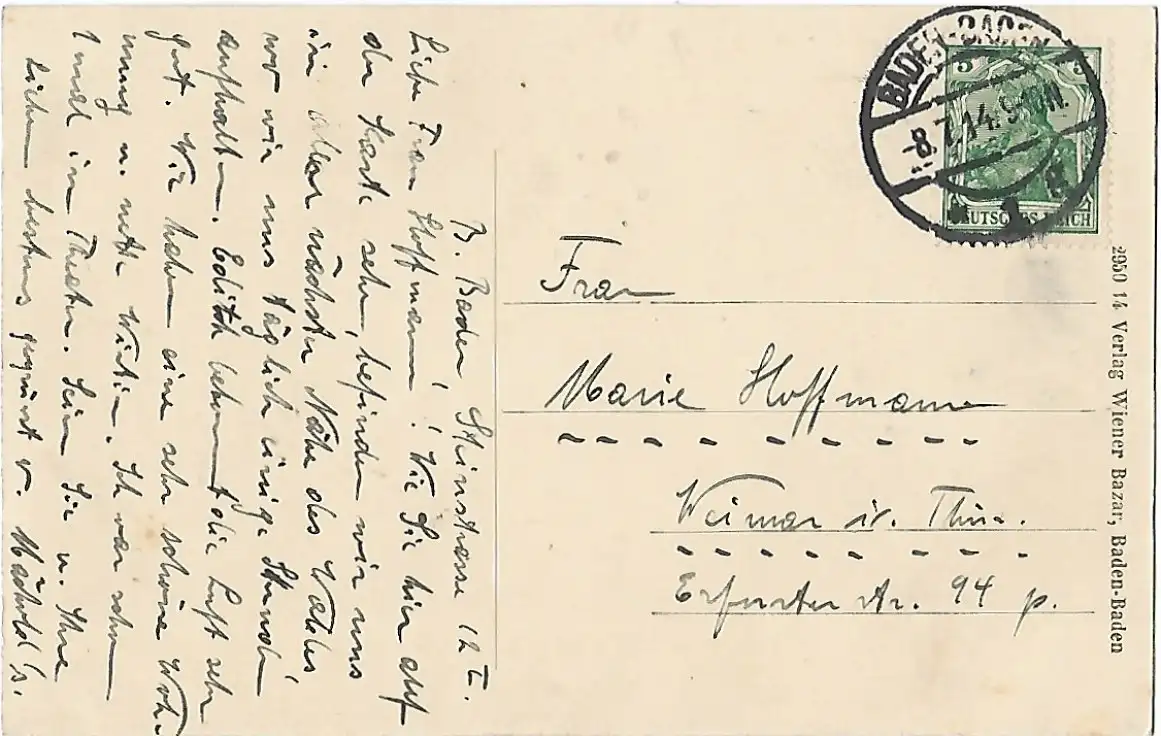 B. Baden Steinstrasse 12 I.
Liebe Frau Hoffmann! Wie Sie hier auf
der Karte sehn, befinden wir uns
in aller nächster Nähe des Waldes
wo wir uns täglich einige Stunden
aufhalten. Edith bekommt die Luft sehr
gut. Wir haben eine sehr schöne Woh-
nung u. nette Wirtin. Ich war schon
1 mal im Theater. Seien Sie u. Ihre
Lieben bestens gegrüsst v.
BADEN-BADEN
-8.7.14. 9-10N.
5
DEUTSCHES REICH
Frau
Marie Hoffmann
Weimar i. Thür.
Erfurter str. 94 p.
2950 14 Verlag Wiener Bazar, Baden-Baden